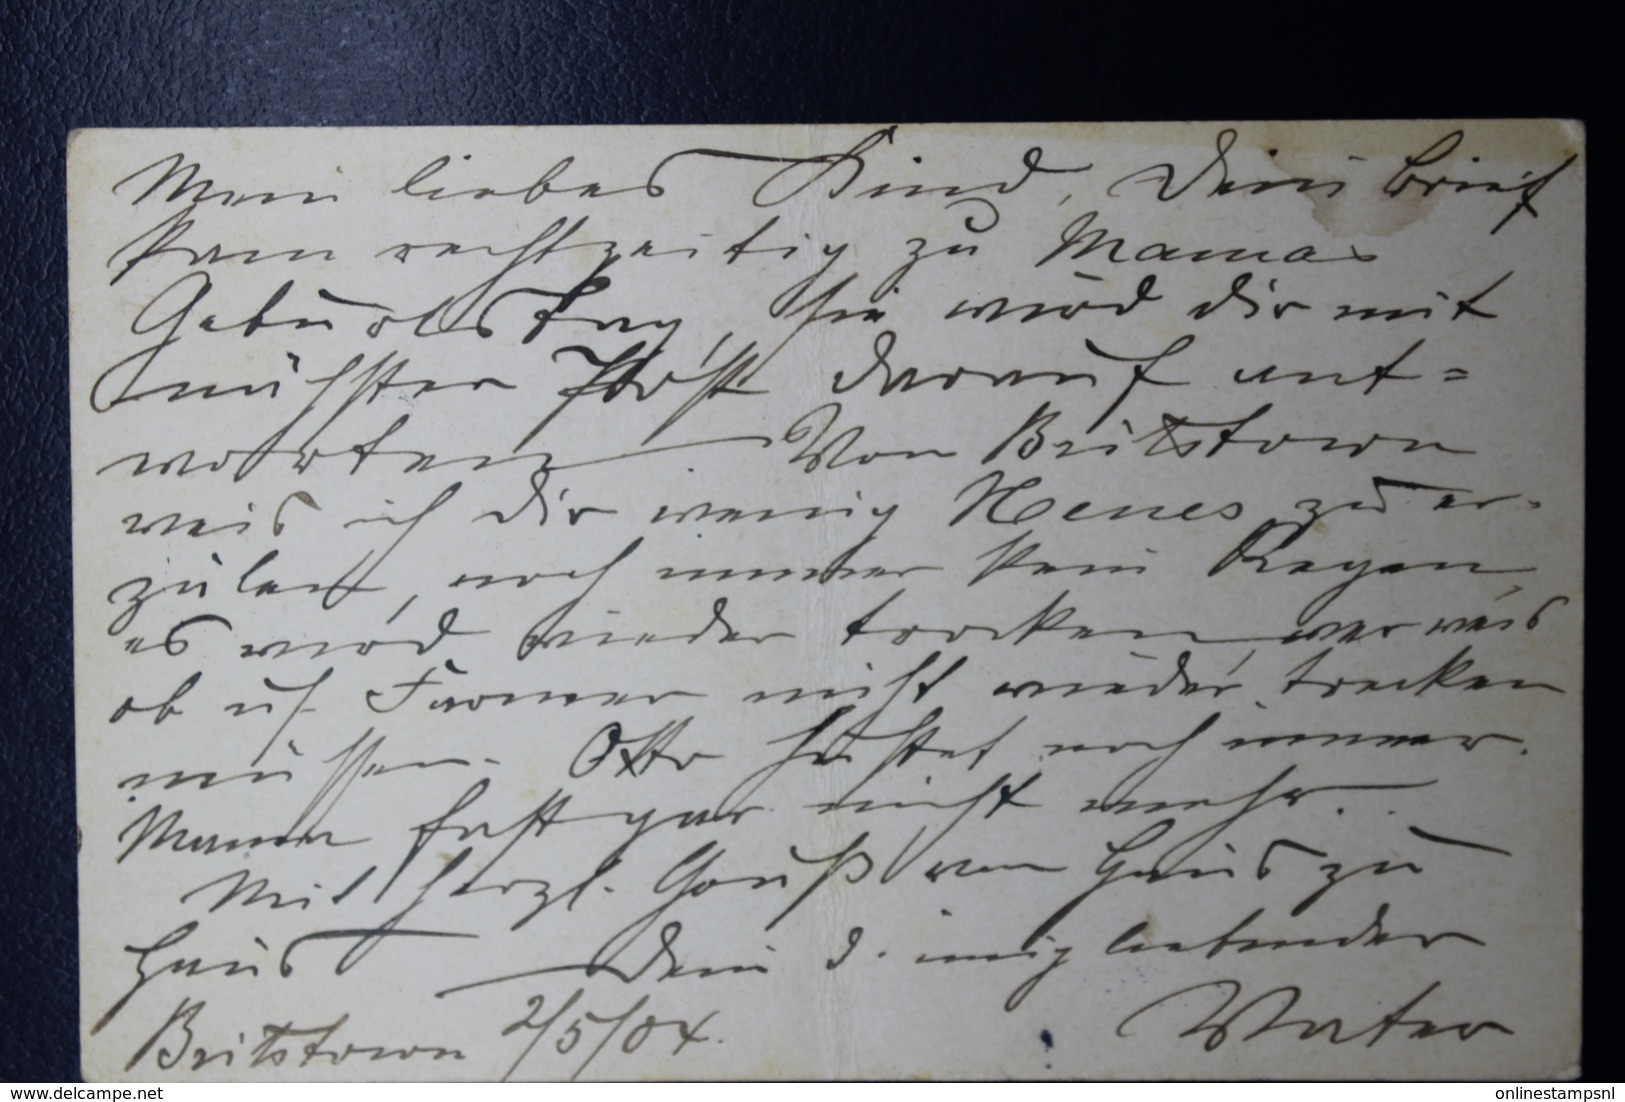 Mein liebes Kind, Dein Brief
kam rechtzeitig zu Mamas
Geburtstag, sie wird dir mit
nächster Post darauf ant=
worten Von Britstown
weis ich dir wenig Neues zu er-
zälen, noch immer kein Regen,
es wird wieder trocken, wer weis
ob uns. Farmer nicht wieder trecken
müssen. Otto hustet noch immer.
Mama fast gar nicht mehr.
Mit herzl. Gruß von Haus zu
Haus Dein d. innig liebender
Britstown 2/5/04. Vater
delcampe.net
onlinestampsnl